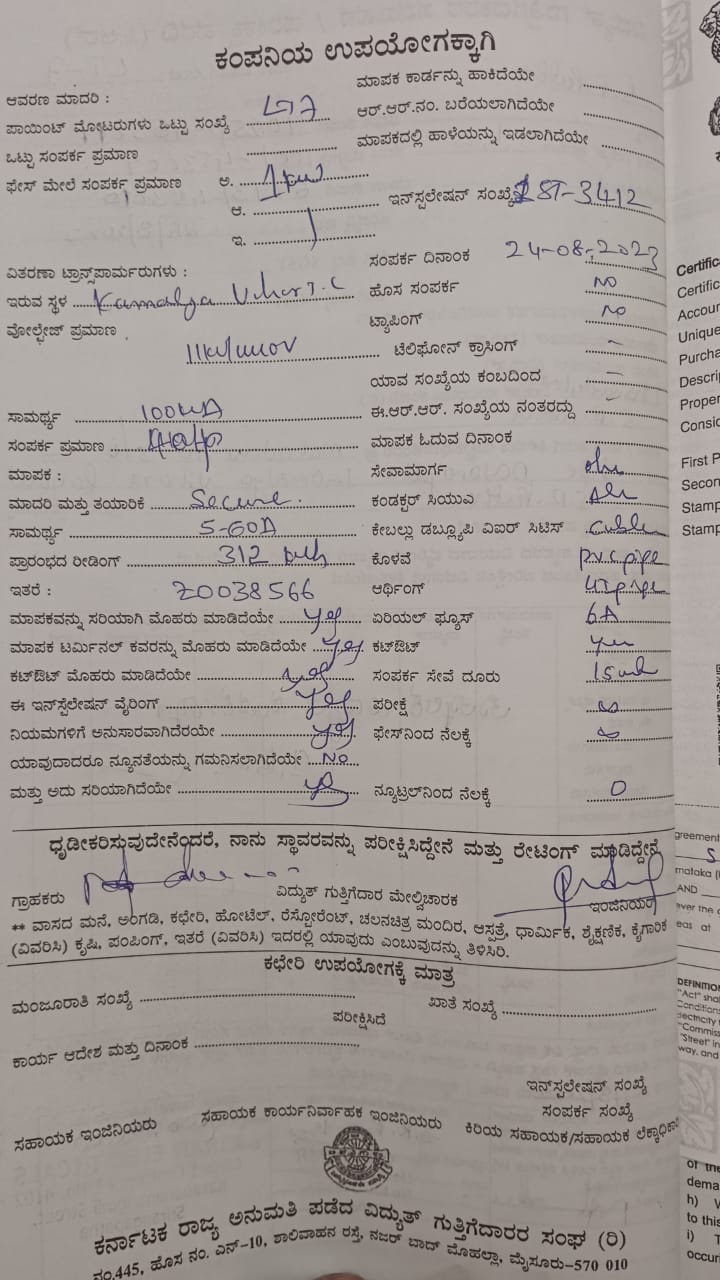 ಕಂಪನಿಯ ಉಪಯೋಗಕ್ಕಾಗಿ
ಆವರಣ ಮಾದರಿ :
ಮಾಪಕ ಕಾರ್ಡನ್ನು ಹಾಕಿದೆಯೇ
ಪಾಯಿಂಟ್ ಮೋಟರುಗಳು ಒಟ್ಟು ಸಂಖ್ಯೆ
ಆರ್.ಆರ್.ನಂ. ಬರೆಯಲಾಗಿದೆಯೇ
ಒಟ್ಟು ಸಂಪರ್ಕ ಪ್ರಮಾಣ
ಮಾಪಕದಲ್ಲಿ ಹಾಳೆಯನ್ನು ಇಡಲಾಗಿದೆಯೇ
ಫೇಸ್ ಮೇಲೆ ಸಂಪರ್ಕ ಪ್ರಮಾಣ ಅ.
ಆ. ಇನ್‌ಸ್ಪಲೇಷನ್ ಸಂಖ್ಯೆ ST-3412
ಇ.
ಸಂಪರ್ಕ ದಿನಾಂಕ 24-08-2023
ವಿತರಣಾ ಟ್ರಾನ್ಸ್‌ಪಾರ್ಮರುಗಳು :
ಇರುವ ಸ್ಥಳ
ಹೊಸ ಸಂಪರ್ಕ NO
ವೋಲ್ಟೇಜ್ ಪ್ರಮಾಣ
ಟ್ಯಾಪಿಂಗ್ NO
ಟೆಲಿಫೋನ್ ಕ್ರಾಸಿಂಗ್ –
ಯಾವ ಸಂಖ್ಯೆಯ ಕಂಬದಿಂದ –
ಸಾಮರ್ಥ್ಯ
ಈ.ಆರ್.ಆರ್. ಸಂಖ್ಯೆಯ ನಂತರದ್ದು –
ಸಂಪರ್ಕ ಪ್ರಮಾಣ
ಮಾಪಕ ಓದುವ ದಿನಾಂಕ
ಮಾಪಕ :
ಸೇವಾಮಾರ್ಗ
ಮಾದರಿ ಮತ್ತು ತಯಾರಿಕೆ Secure.
ಕಂಡಕ್ಟರ್ ಸಿಯುಎ
ಸಾಮರ್ಥ್ಯ 5-60A
ಕೇಬಲ್ಲು ಡಬ್ಲ್ಯೂಪಿ ಎಐರ್ ಸಿಟಿಸ್
ಪ್ರಾರಂಭದ ರೀಡಿಂಗ್ 312
ಕೊಳವೆ P.V.C pipe
ಇತರೆ : Z0038566
ಆರ್ಥಿಂಗ್
ಮಾಪಕವನ್ನು ಸರಿಯಾಗಿ ಮೊಹರು ಮಾಡಿದೆಯೇ yes
ಏರಿಯಲ್ ಫ್ಯೂಸ್ 6A
ಮಾಪಕ ಟರ್ಮಿನಲ್ ಕವರನ್ನು ಮೊಹರು ಮಾಡಿದೆಯೇ yes
ಕಟ್‌ಔಟ್
ಕಟ್‌ಔಟ್ ಮೊಹರು ಮಾಡಿದೆಯೇ yes
ಸಂಪರ್ಕ ಸೇವೆ ದೂರು
ಈ ಇನ್‌ಸ್ಪೆಲೇಷನ್ ವೈರಿಂಗ್ yes
ಪರೀಕ್ಷೆ
ನಿಯಮಗಳಿಗೆ ಅನುಸಾರವಾಗಿದೆರಯೇ yes
ಫೇಸ್‌ನಿಂದ ನೆಲಕ್ಕೆ
ಯಾವುದಾದರೂ ನ್ಯೂನತೆಯನ್ನು ಗಮನಿಸಲಾಗಿದೆಯೇ No
ಮತ್ತು ಅದು ಸರಿಯಾಗಿದೆಯೇ
ನ್ಯೂಟ್ರಲ್‌ನಿಂದ ನೆಲಕ್ಕೆ 0
ಧೃಡೀಕರಿಸುವುದೇನೆಂದರೆ, ನಾನು ಸ್ಥಾವರವನ್ನು ಪರೀಕ್ಷಿಸಿದ್ದೇನೆ ಮತ್ತು ರೇಟಿಂಗ್ ಮಾಡಿದ್ದೇನೆ
ಗ್ರಾಹಕರು ವಿದ್ಯುತ್ ಗುತ್ತಿಗೆದಾರ ಮೇಲ್ವಿಚಾರಕ ಇಂಜಿನಿಯರ
** ವಾಸದ ಮನೆ, ಅಂಗಡಿ, ಕಛೇರಿ, ಹೋಟೆಲ್, ರೆಸ್ಟೋರೆಂಟ್, ಚಲನಚಿತ್ರ ಮಂದಿರ, ಆಸ್ಪತ್ರೆ, ಧಾರ್ಮಿಕ, ಶೈಕ್ಷಣಿಕ, ಕೈಗಾರಿಕ
(ವಿವರಿಸಿ) ಕೃಷಿ, ಪಂಪಿಂಗ್, ಇತರೆ (ವಿವರಿಸಿ) ಇದರಲ್ಲಿ ಯಾವುದು ಎಂಬುವುದನ್ನು ತಿಳಿಸಿರಿ.
ಕಛೇರಿ ಉಪಯೋಗಕ್ಕೆ ಮಾತ್ರ
ಮಂಜೂರಾತಿ ಸಂಖ್ಯೆ ಖಾತೆ ಸಂಖ್ಯೆ
ಪರೀಕ್ಷಿಸಿದೆ
ಕಾರ್ಯ ಆದೇಶ ಮತ್ತು ದಿನಾಂಕ
ಇನ್‌ಸ್ಪಲೇಷನ್ ಸಂಖ್ಯೆ
ಸಂಪರ್ಕ ಸಂಖ್ಯೆ
ಸಹಾಯಕ ಇಂಜಿನಿಯರು ಸಹಾಯಕ ಕಾರ್ಯನಿರ್ವಾಹಕ ಇಂಜಿನಿಯರು ಕಿರಿಯ ಸಹಾಯಕ/ಸಹಾಯಕ
ಕರ್ನಾಟಕ ರಾಜ್ಯ ಅನುಮತಿ ಪಡೆದ ವಿದ್ಯುತ್ ಗುತ್ತಿಗೆದಾರರ ಸಂಘ (ರಿ)
ನಂ.445, ಹೊಸ ನಂ. ಎನ್-10, ಶಾಲಿವಾಹನ ರಸ್ತೆ, ನಜರ್ ಬಾದ್ ಮೊಹಲ್ಲಾ, ಮೈಸೂರು-570 010
Certific
Certific
Accour
Unique
Purcha
Descri
Proper
Consic
First P
Secon
Stamp
Stamp
greement
AND
DEFINITION
"Act" shal
Conditions
"Commiss
"Street" in
way, and
of the
dema
h)
to this
i)
occuri